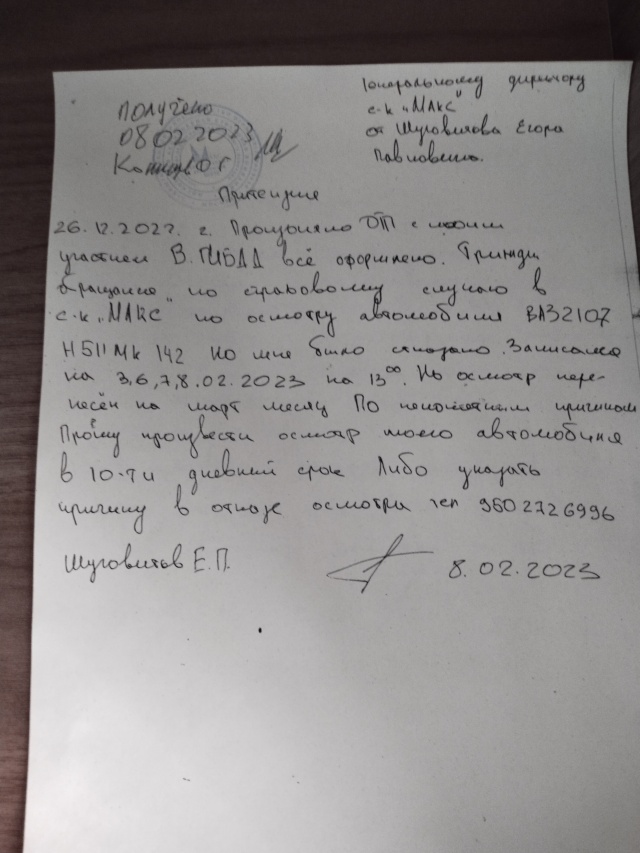 Генеральному директору
с.к „МАКС“
от Шуговитова Егора
Павловича.
получено
08 02 2023
Претензия
26.12.2022 г. Произошло ДТП с моим
участием В. ГИБДД всё оформлено. Трижды
обращался по страховому случаю в
с.к „МАКС по осмотру автомобиля ВАЗ2107
Н511МК 142 Но мне было отказано. Записался
на 3,6,7,8.02.2023 на 13⁰⁰. Но осмотр пере-
несён на март месяц По непонятным причинам
Прошу произвести осмотр моего автомобиля
в 10-ти дневний срок Либо указать
причину в отказе осмотра тел 960 272 6996
Шуговитов Е.П.
8.02.2023